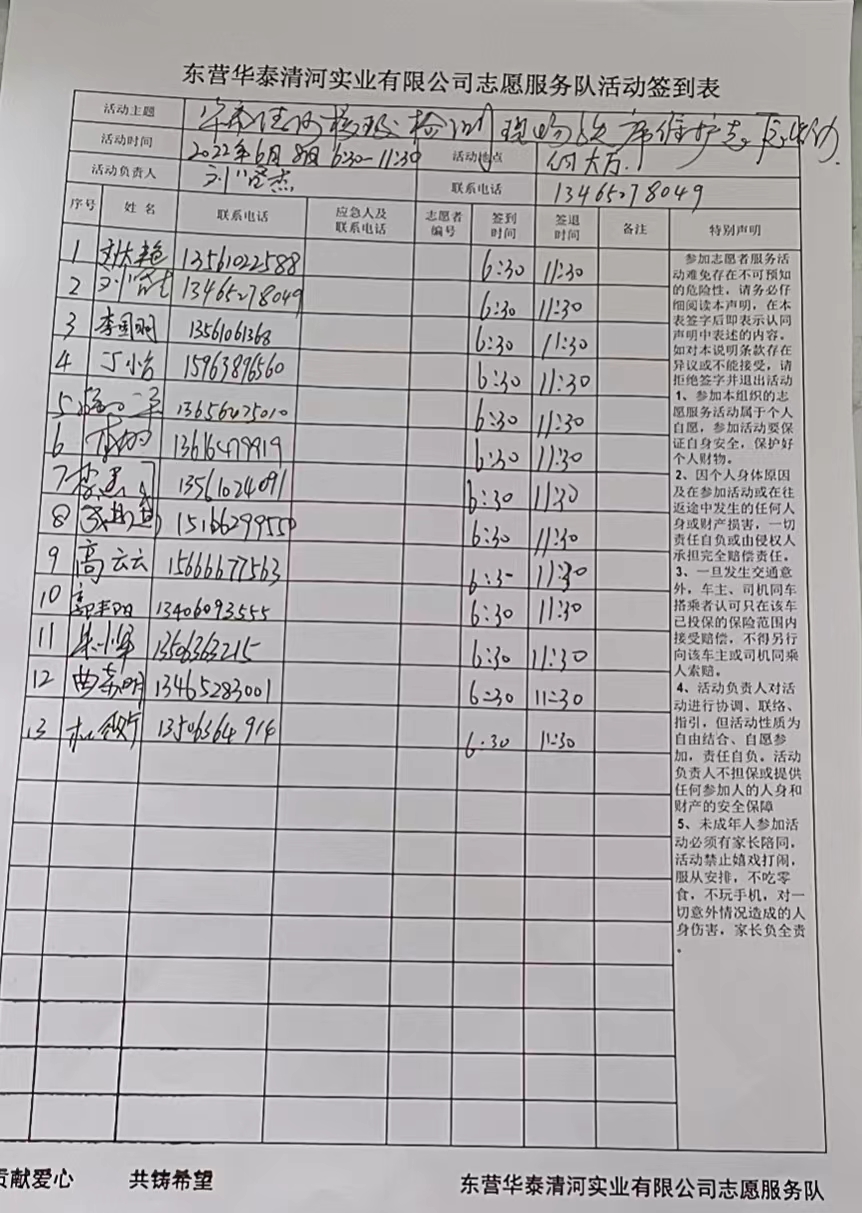 东营华泰清河实业有限公司志愿服务队活动签到表
活动主题 华泰清河核酸检测现场秩序维护志愿活动
活动时间 2022年6月8日 6:30-11:30 活动地点 大厅
活动负责人 联系电话 13465278049
序号 姓名 联系电话 应急人及联系电话 志愿者编号 签到时间 签退时间 备注 特别声明
1 13561022588 6:30 11:30
2 13465278049 6:30 11:30
3 李国明 13561061368 6:30 11:30
4 丁小台 15963896560 6:30 11:30
5 13656475010 6:30 11:30
6 13616479919 6:30 11:30
7 13561024091 6:30 11:30
8 15166299550 6:30 11:30
9 高云云 15666677563 6:30 11:30
10 13406093555 6:30 11:30
11 朱小军 13506363215 6:30 11:30
12 13465283001 6:30 11:30
13 13506364914 6:30 11:30
参加志愿者服务活
动难免存在不可预知
的危险性，请务必仔
细阅读本声明，在本
表签字后即表示认同
声明中表述的内容。
如对本说明条款存在
异议或不能接受，请
拒绝签字并退出活动
1、参加本组织的志
愿服务活动属于个人
自愿，参加活动要保
证自身安全，保护好
个人财物。
2、因个人身体原因
及在参加活动或在往
返途中发生的任何人
身或财产损害，一切
责任自负或由侵权人
承担完全赔偿责任。
3、一旦发生交通意
外，车主、司机同车
搭乘者认可只在该车
已投保的保险范围内
接受赔偿，不得另行
向该车主或司机同乘
人索赔。
4、活动负责人对活
动进行协调、联络、
指引，但活动性质为
自由结合、自愿参
加，责任自负。活动
负责人不担保或提供
任何参加人的人身和
财产的安全保障
5、未成年人参加活
动必须有家长陪同，
活动禁止嬉戏打闹，
服从安排，不吃零
食，不玩手机，对一
切意外情况造成的人
身伤害，家长负全责
。
贡献爱心 共铸希望 东营华泰清河实业有限公司志愿服务队